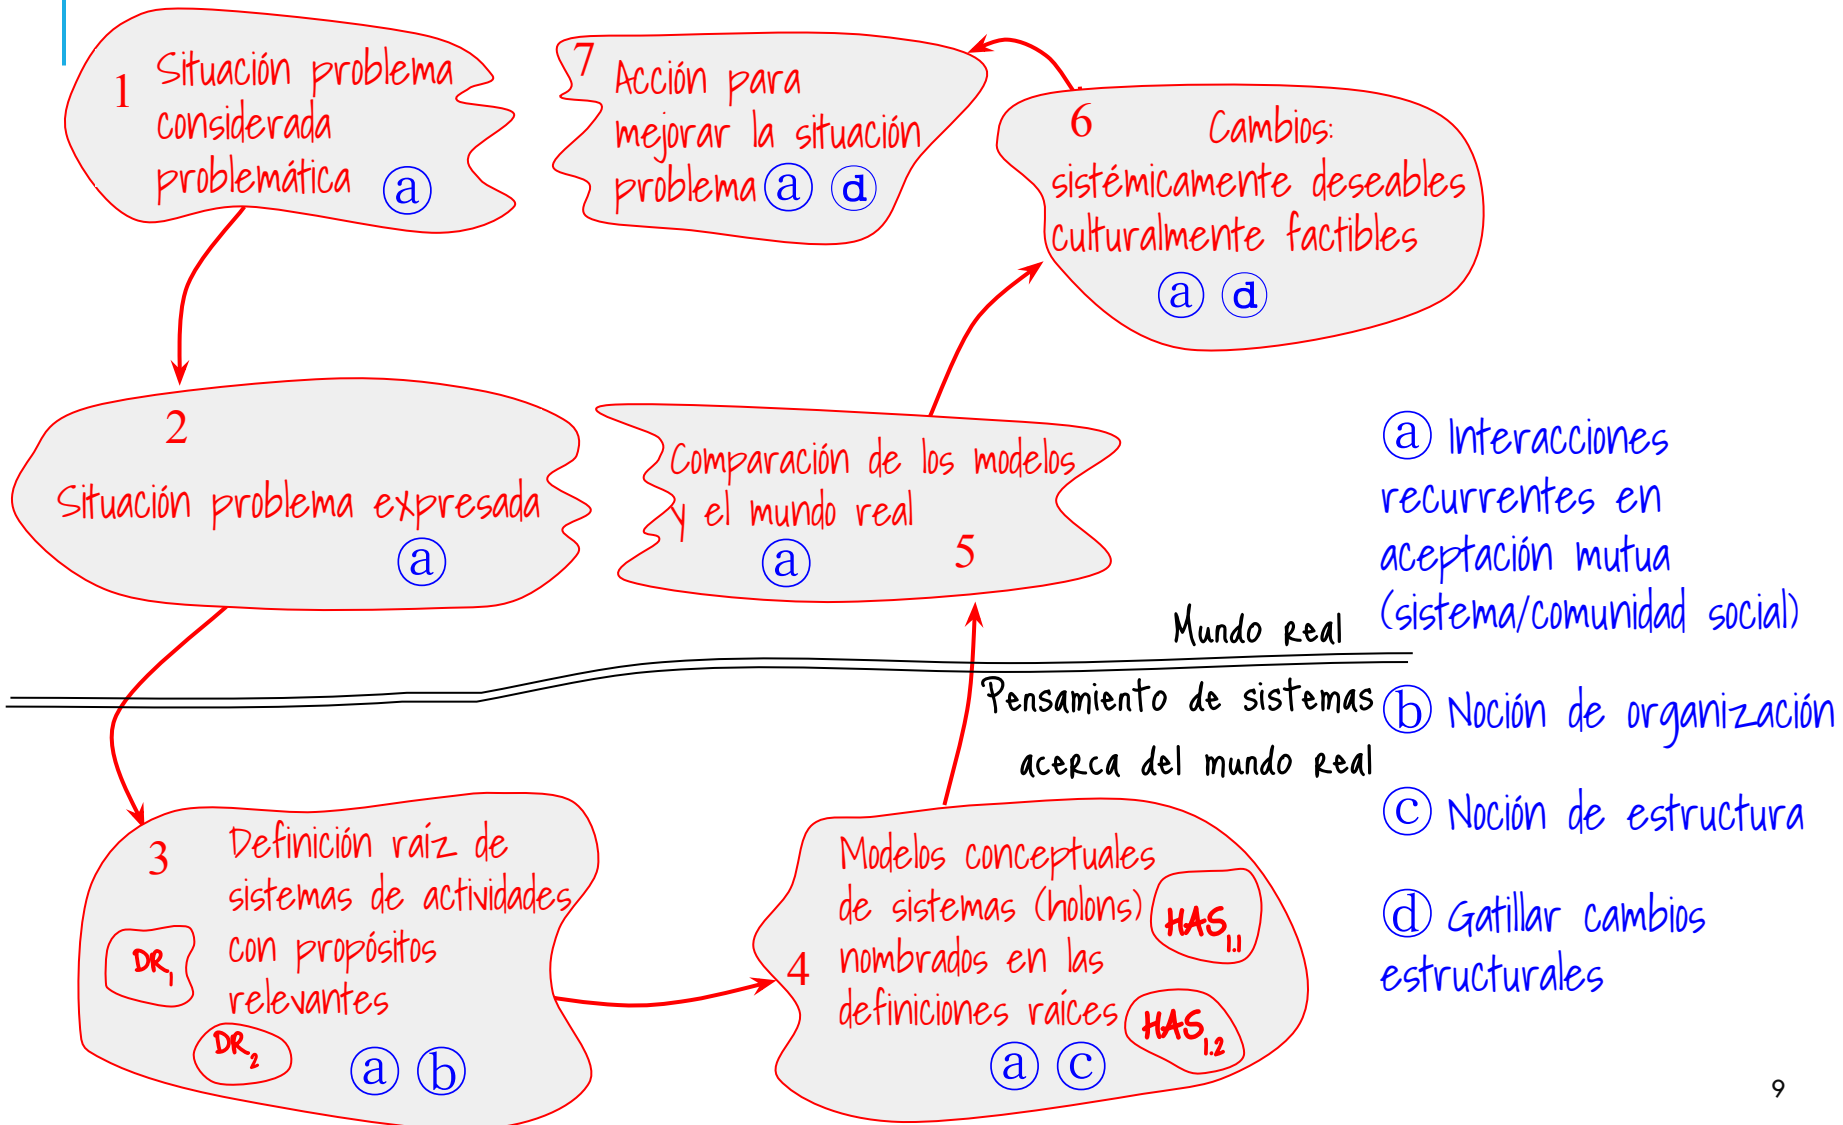 1
Situación problema
considerada
problemática ⓐ
7
Acción para
mejorar la situación
problema ⓐ ⓓ
6
Cambios:
sistémicamente deseables
culturalmente factibles
ⓐ ⓓ
2
Situación problema expresada
ⓐ
Comparación de los modelos
y el mundo real
ⓐ 5
Mundo real
Pensamiento de sistemas
acerca del mundo real
3
Definición raíz de
sistemas de actividades
con propósitos
relevantes
DR1
DR2
ⓐ ⓑ
4
Modelos conceptuales
de sistemas (holons)
nombrados en las
definiciones raíces
HAS1.1
HAS1.2
ⓐ ⓒ
ⓐ Interacciones
recurrentes en
aceptación mutua
(sistema/comunidad social)
ⓑ Noción de organización
ⓒ Noción de estructura
ⓓ Gatillar cambios
estructurales
9